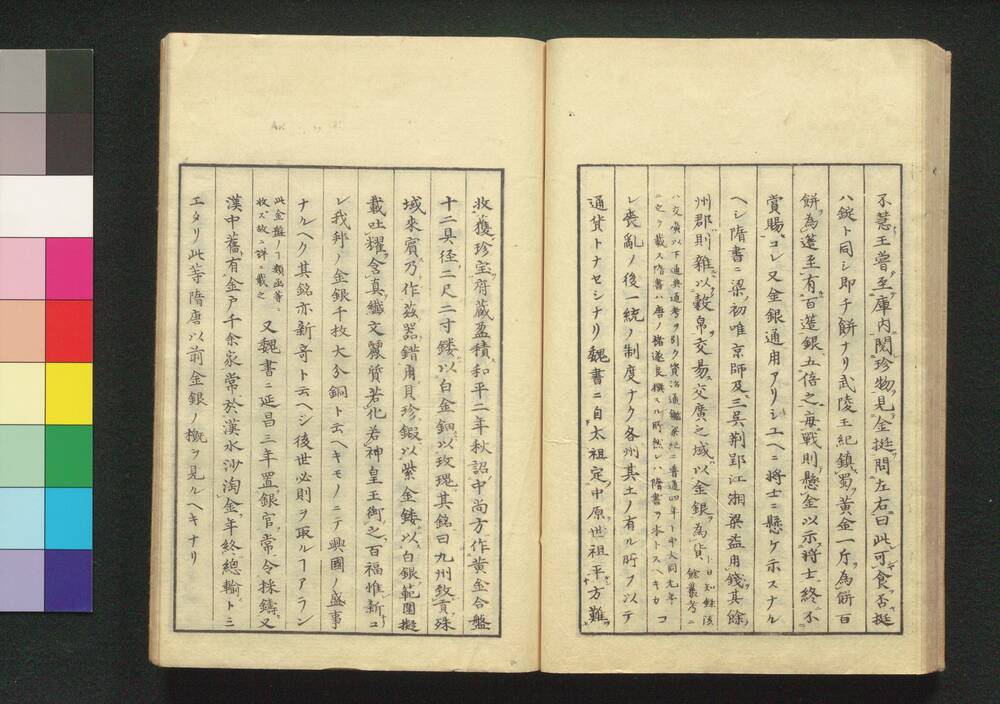 不慧王嘗至庫内閲珍物見金挺問左右曰此可食否挺
ハ錠ト同シ即チ餅ナリ武陵王紀鎮蜀黄金一斤為餅百
餅為簉至有百簉銀五倍之毎戰則懸金以示将士終不
賞賜コレ又金銀通用アリシユヘニ将士ニ懸ケ示スナル
ヘシ隋書ニ梁初唯京師及三呉荆郢江湘梁益用錢其餘
州郡則雜以穀帛交易交廣之域以金銀為貨
ト日知録該
餘叢考ニ
ハ交廣以下通典通考ヲ引ク資治通鑑梁紀ニ普通四年ト中大同元年
ニセヲ載ス隋書ハ唐ノ褚遂良撰ヘル所然レハ隋書ヲ本トスヘキカ
コ
レ喪亂ノ後一統ノ制度ナク各州其土ノ有ル所ヲ以テ
通貨トナセシナリ魏書ニ自太祖定中原世祖平方難
收獲珍宝府藏盈積和平二年秋詔中尚方作黄金合盤
十二具径二尺二寸鏤以白金鈿以玫瑰其銘曰九州致貢殊
域来賓乃作茲器錯用具珍鍜以紫金鏤以白銀範圍擬
載吐耀含真纎文麗質若化若神皇王御之百福惟新コ
レ我邦ノ金銀千枚大分銅ト云ヘキモノニテ興國ノ盛事
ナルヘク其銘亦新奇ト云ヘシ後世必則ヲ取ルヿアラン
此金盤ノヿ類函等ニ
收ズ故ニ詳ニ載之
又魏書ニ延昌三年置銀官常令採鑄又
漢中舊有金戸千余家常於漢水沙淘金年終總輸トミ
エタリ此等隋唐以前金銀ノ概ヲ見ルヘキナリ